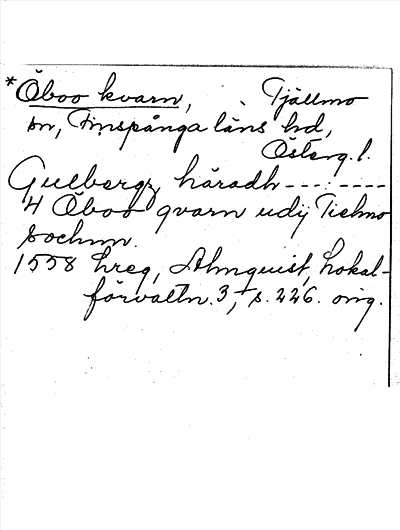 *Öboo kvarn, Tjällmo
sn, Finspånga läns hd,
Österg. l.
Gulbergz häradh ---:----
4 Öboo qvarn udij Tielmo
sochnn.
1558 hreg, Almquist, Lokal-
förvaltn. 3, s. 226. orig.